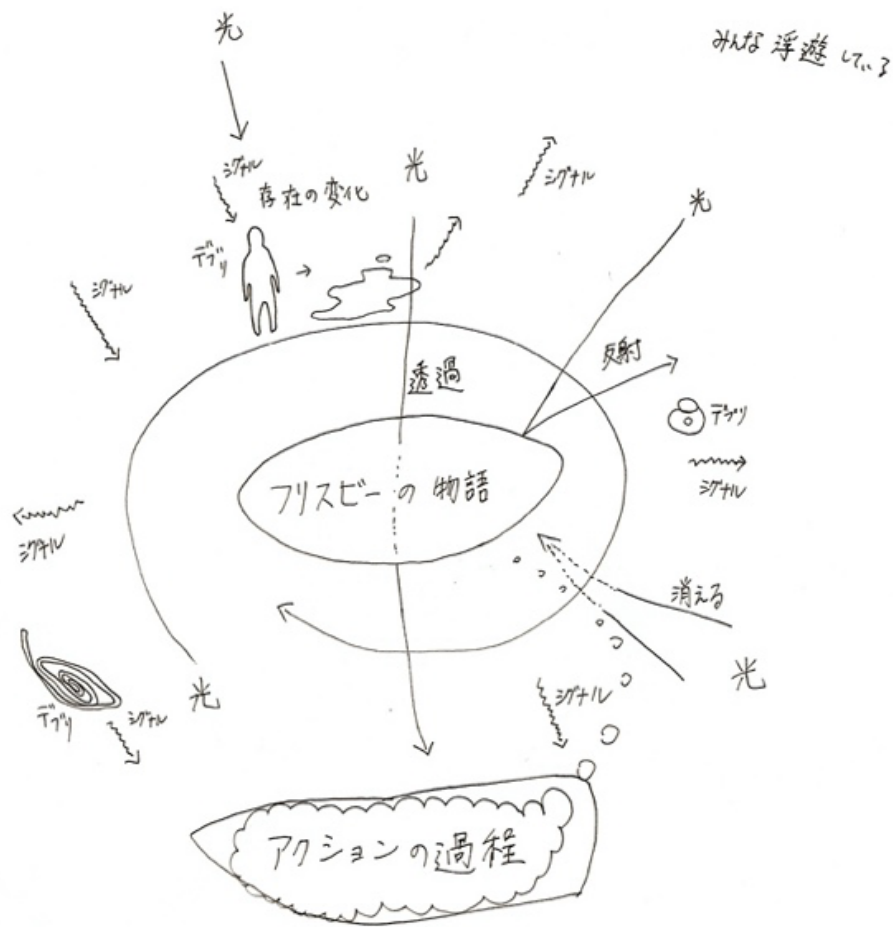 光
みんな浮遊している
シグナル
存在の変化
光
シグナル
光
デブリ
シグナル
反射
透過
デブリ
シグナル
フリスビーの物語
シグナル
消える
光
光
シグナル
デブリ
シグナル
アクションの過程